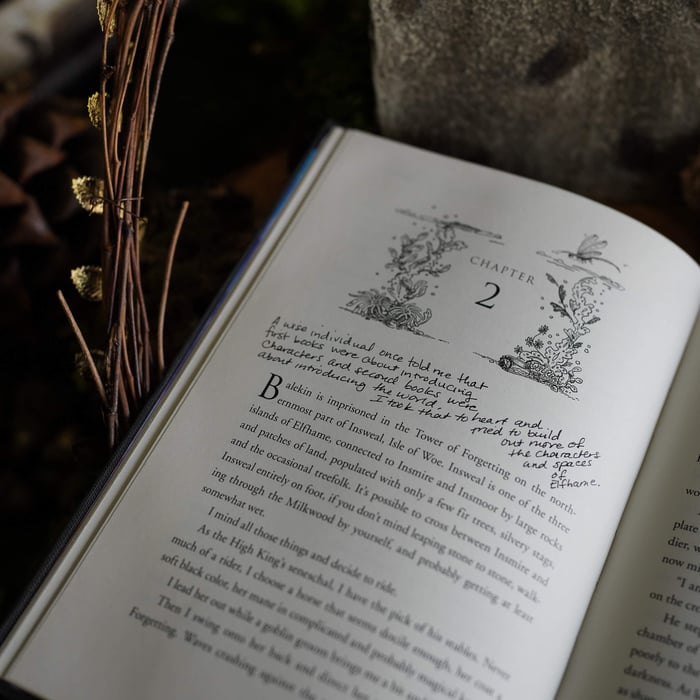 CHAPTER
2
A wise individual once told me that
first books were about introducing
characters and second books were
about introducing the world.
I took that to heart and
tried to build
out more of
the characters
and spaces
of
Elfhame.
Balekin is imprisoned in the Tower of Forgetting on the north-
ernmost part of Insweal, Isle of Woe. Insweal is one of the three
islands of Elfhame, connected to Insmire and Insmoor by large rocks
and patches of land, populated with only a few fir trees, silvery stags,
and the occasional treefolk. It's possible to cross between Insmire and
Insweal entirely on foot, if you don't mind leaping stone to stone, walk-
ing through the Milkwood by yourself, and probably getting at least
somewhat wet.
I mind all those things and decide to ride.
As the High King's seneschal, I have the pick of his stables. Never
much of a rider, I choose a horse that seems docile enough, her coat a
soft black color, her mane in complicated and probably magical
I lead her out while a goblin groom brings me a
Then I swing onto her back and direct her
Forgetting. Waves crashing against the
plate
dier, w
now mi
"I a
on the cr
He ste
chamber of
poorly to th
darkness. A